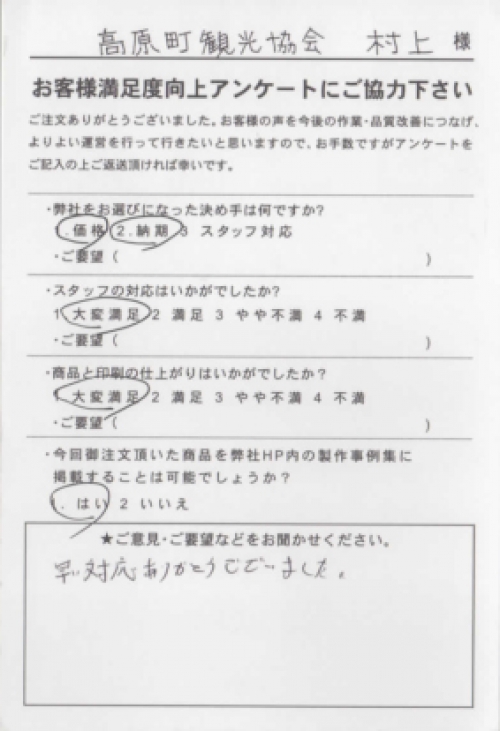 高原町観光協会 村上 様
お客様満足度向上アンケートにご協力下さい
ご注文ありがとうございました。お客様の声を今後の作業・品質改善につなげ、
よりよい運営を行って行きたいと思いますので、お手数ですがアンケートを
ご記入の上ご返送頂ければ幸いです。
・弊社をお選びになった決め手は何ですか?
1.価格 2.納期 3 スタッフ対応
・ご要望( )
・スタッフの対応はいかがでしたか?
1 大変満足 2 満足 3 やや不満 4 不満
・ご要望( )
・商品と印刷の仕上がりはいかがでしたか?
1 大変満足 2 満足 3 やや不満 4 不満
・ご要望( )
・今回御注文頂いた商品を弊社HP内の製作事例集に
掲載することは可能でしょうか?
1. はい 2 いいえ
★ご意見・ご要望などをお聞かせください。
早い対応ありがとうございました。